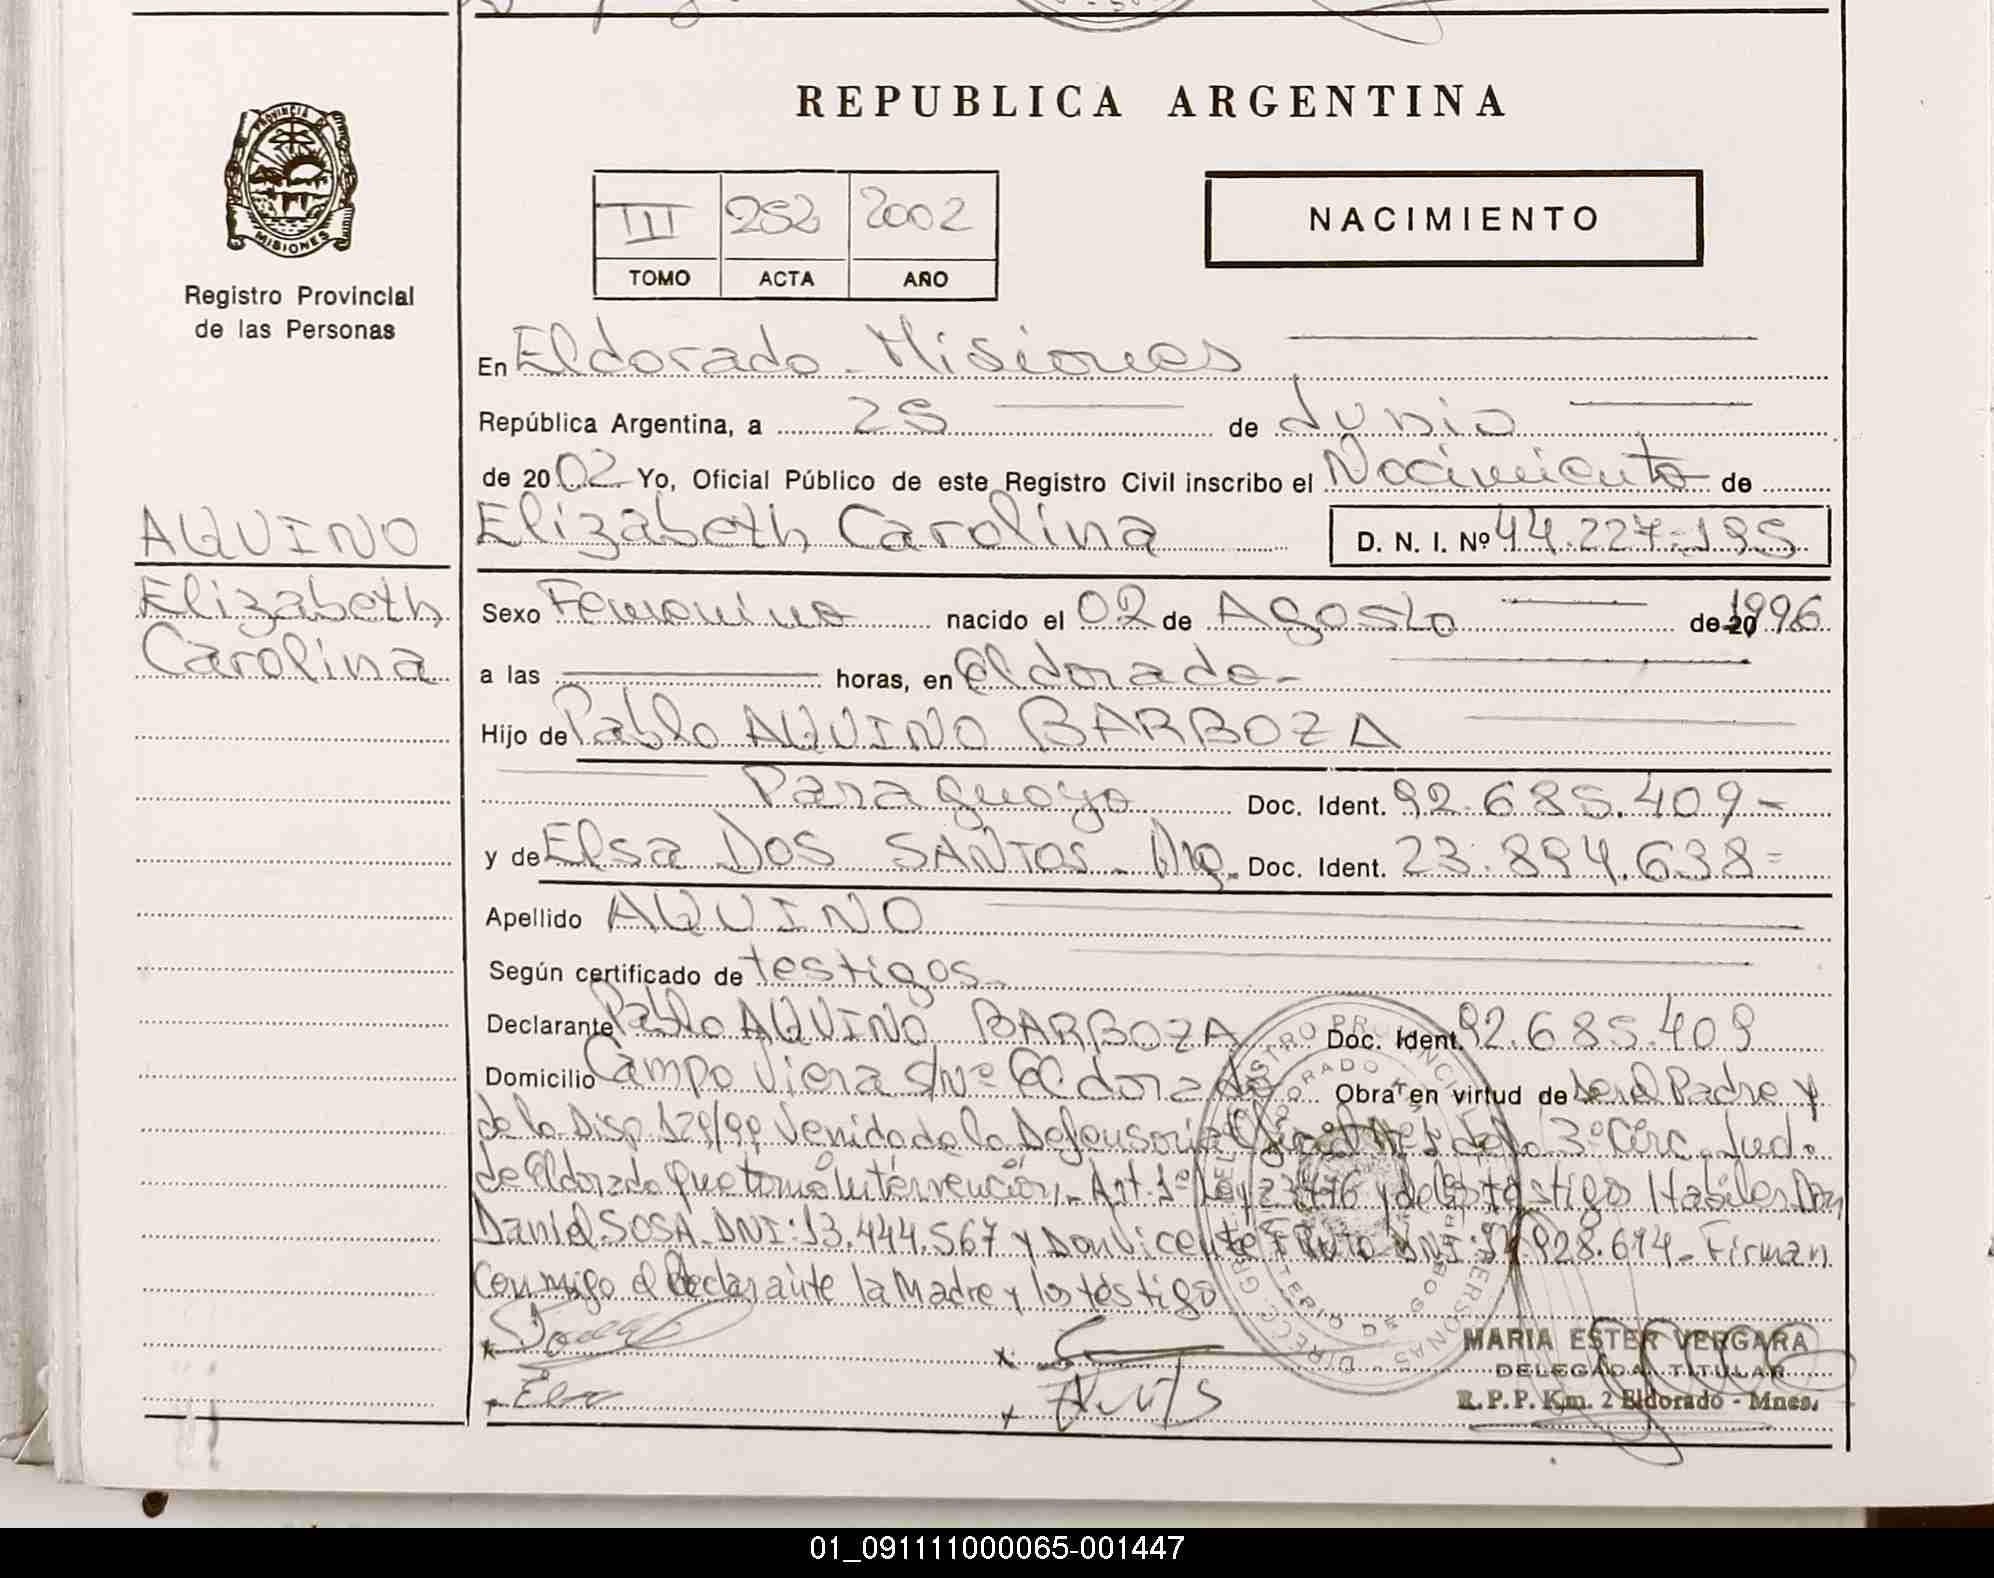 REPUBLICA ARGENTINA
PROVINCIA DE MISIONES
Registro Provincial
de las Personas
III 252 2002
TOMO ACTA AÑO
NACIMIENTO
En Eldorado - Misiones
República Argentina, a 25 de Junio
de 2002 Yo, Oficial Público de este Registro Civil inscribo el Nacimiento de
AQUINO
Elizabeth
Carolina
Elizabeth Carolina D. N. I. Nº 44.227.195
Sexo Femenino nacido el 02 de Agosto de 20 1996
a las horas, en Eldorado-
Hijo de Pablo AQUINO BARBOZA
Paraguayo Doc. Ident. 92.685.409-
y de Elsa DOS SANTOS - Arg. Doc. Ident. 23.894.638=
Apellido AQUINO
Según certificado de testigos-
Declarante Pablo AQUINO BARBOZA Doc. Ident. 92.685.409
Domicilio Campo Viera s/Nº Eldorado Obra en virtud de ser el Padre y
de la Disp. 179/99 Venida de la Defensoria Nº 1 de la 3º Circ. Jud.
de Eldorado que tomó intervención,- Art. 1º Ley 23776 y de los testigos Habiles Don
Daniel SOSA DNI: 13.444.567 y Don Vicente DNI: .928.614- Firman
Conmigo el Declarante la Madre y los testigo
MARIA ESTER VERGARA
DELEGADA TITULAR
R.P.P. Km. 2 Eldorado - Mnes.
01_091111000065-001447